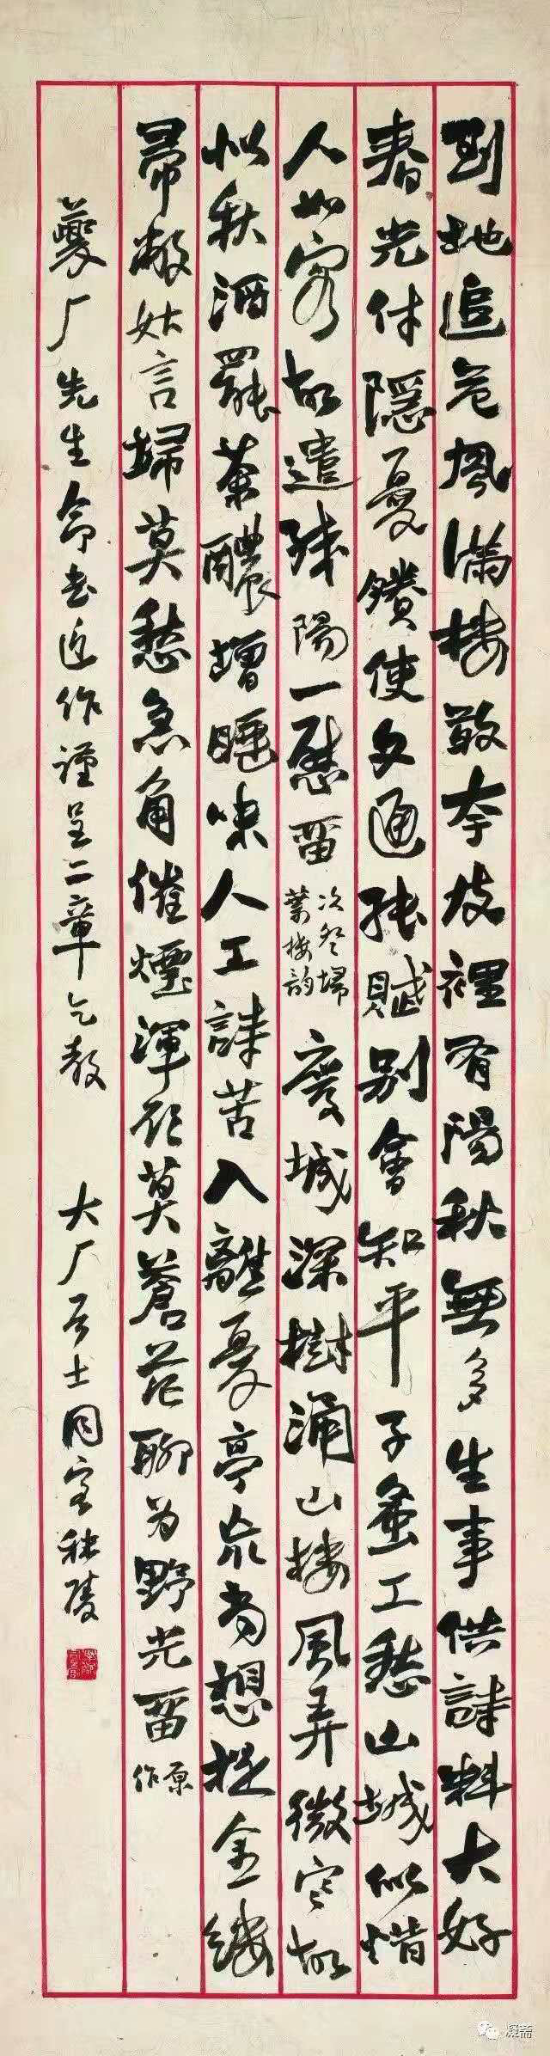 到地追危風滿樓敢夸皮裡有陽秋無多生事供詩料大好
春光付隱憂使文通賦別會知平子工愁山城似惜
人如客故遣殘陽一慰留次葉樓韵廢城深樹涌山樓風弄微寒故
似秋酒罷茶醲增睡味人工詩苦入離憂亭尚想捉金縷
帚敝姑言歸莫愁急角催煙渾欲莫蒼茫聊為野光留原作
夔厂先生命書近作謹呈二章乞教 大厂居士同客秣陵
凝斋